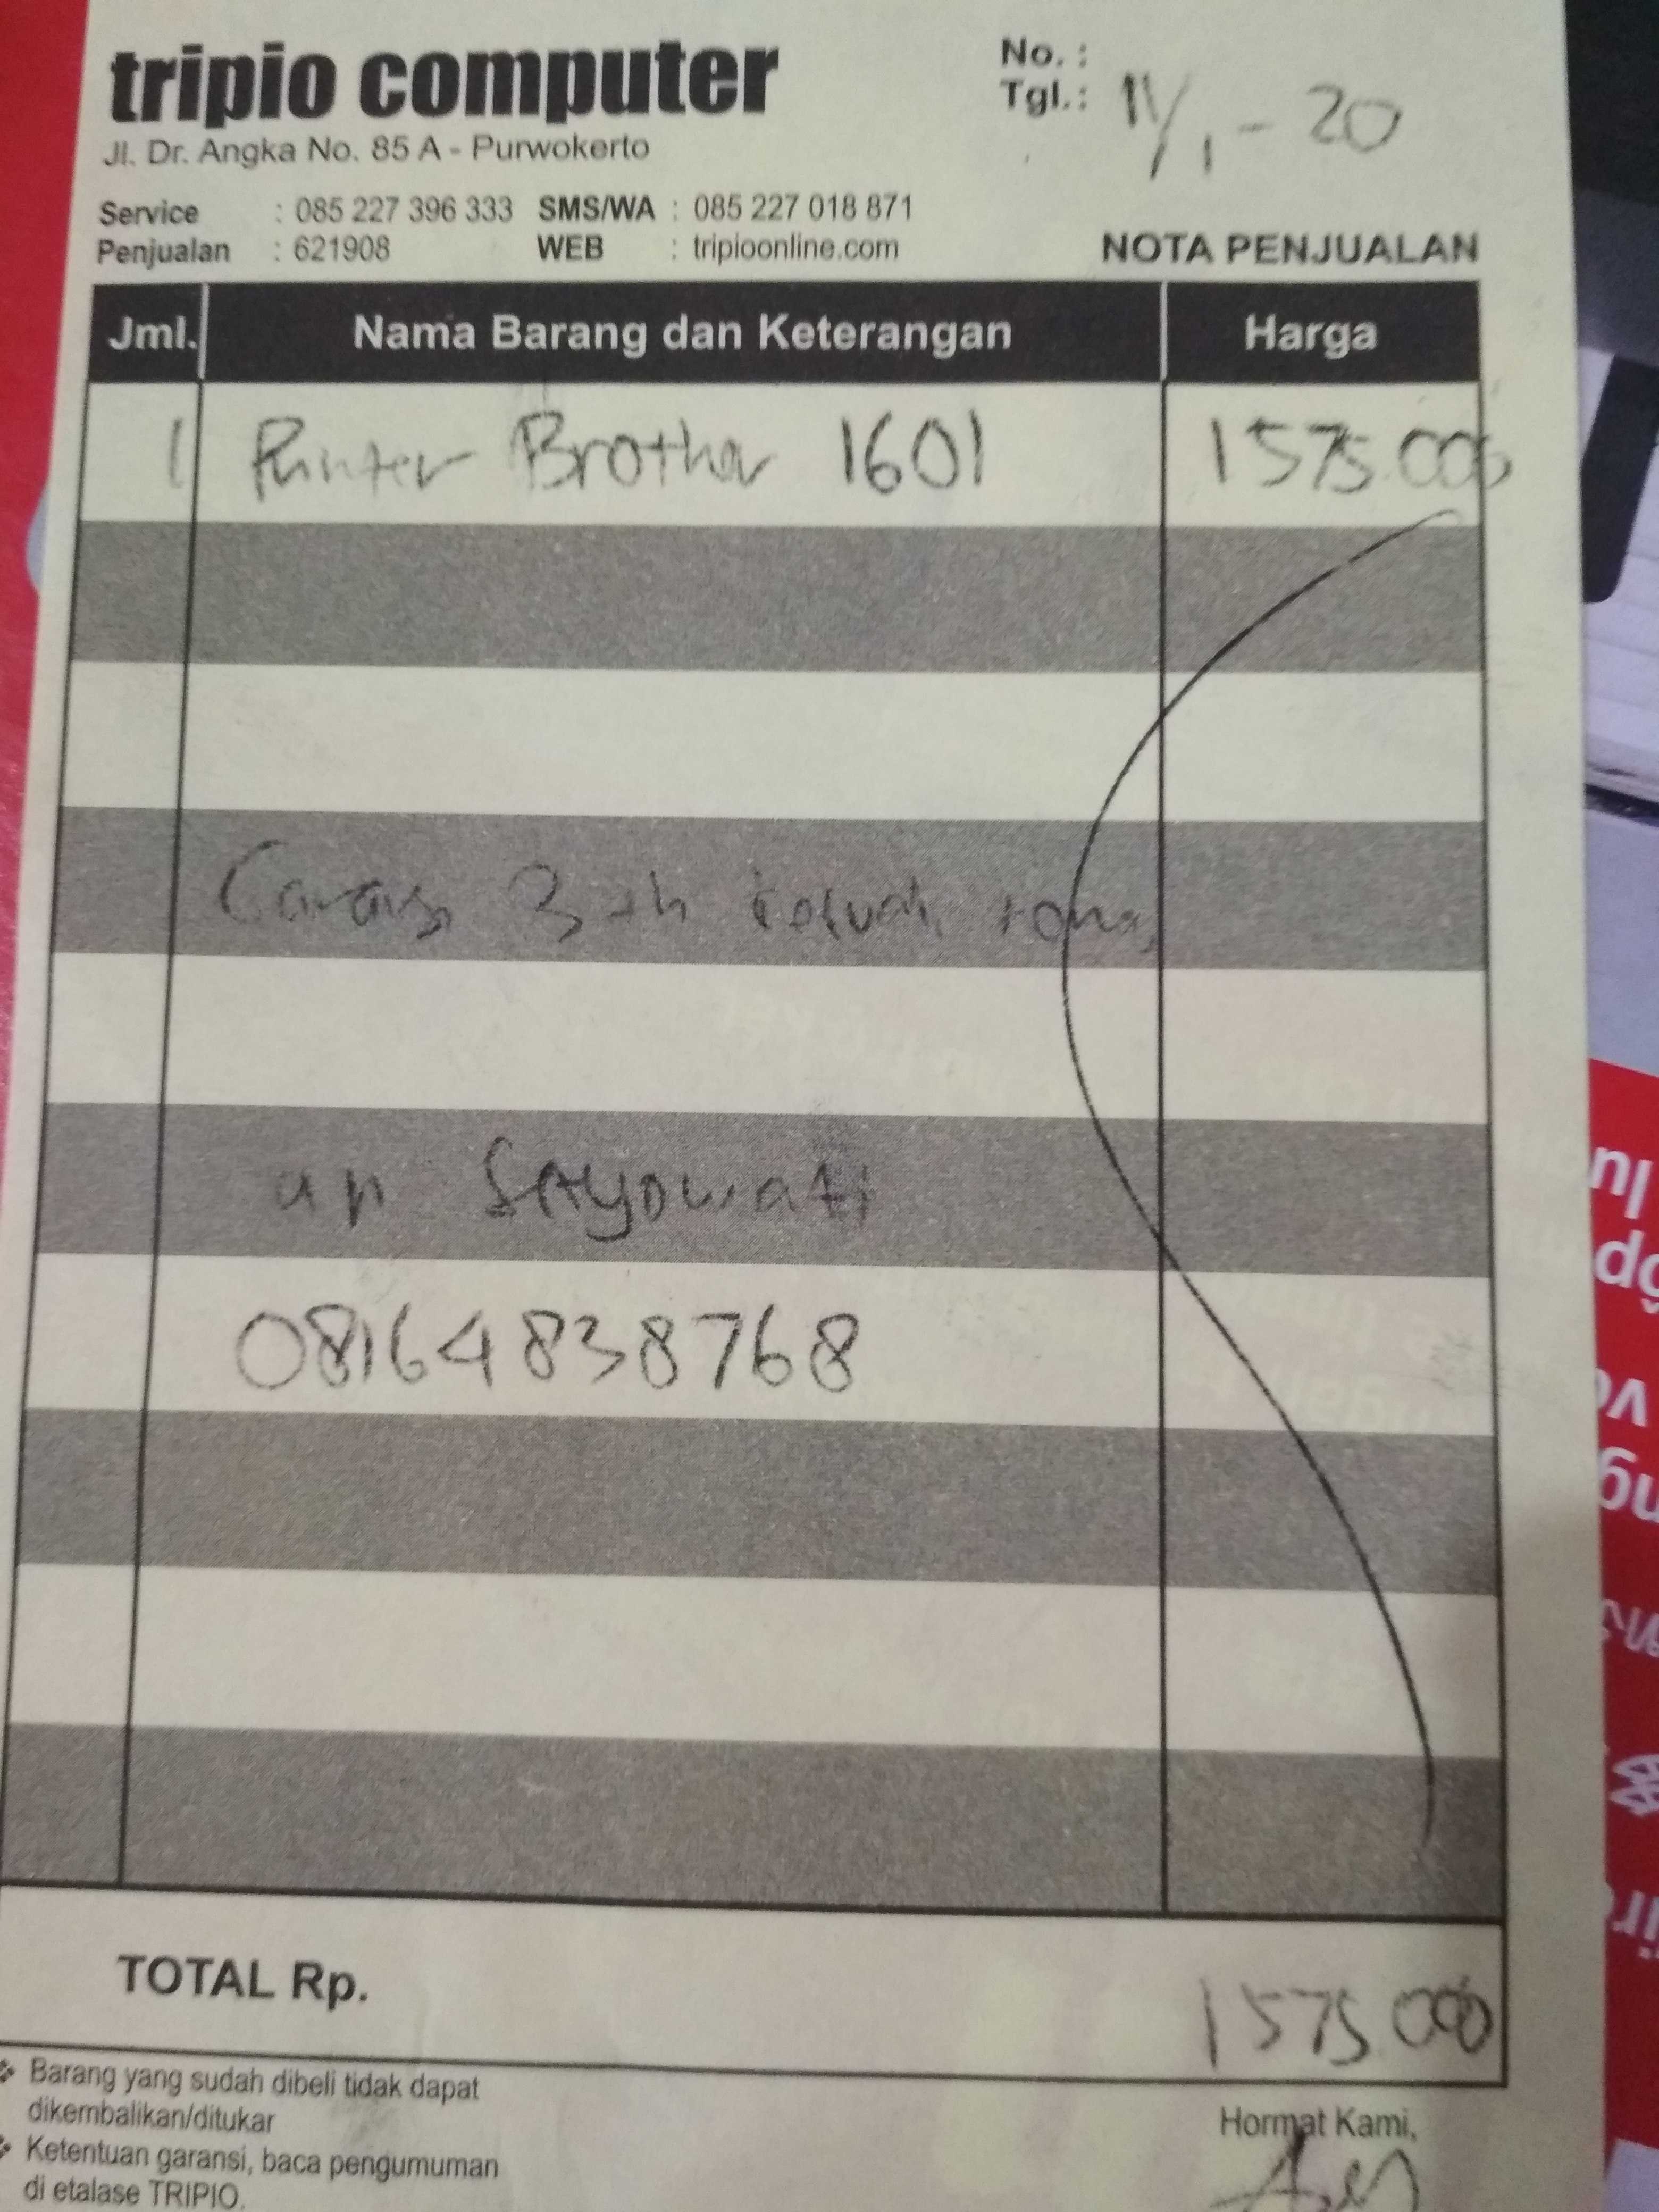 tripio computer
Jl. Dr. Angka No. 85 A - Purwokerto
No. :
Tgl. : 11/1 - 20
Service : 085 227 396 333 SMS/WA : 085 227 018 871
Penjualan : 621908 WEB : tripioonline.com
NOTA PENJUALAN
Jml. Nama Barang dan Keterangan Harga
1 Printer Brother 1601 1575.000
3 th
an Setyowati
08164838768
TOTAL Rp. 1575.000
Barang yang sudah dibeli tidak dapat
dikembalikan/ditukar
Ketentuan garansi, baca pengumuman
di etalase TRIPIO.
Hormat Kami,